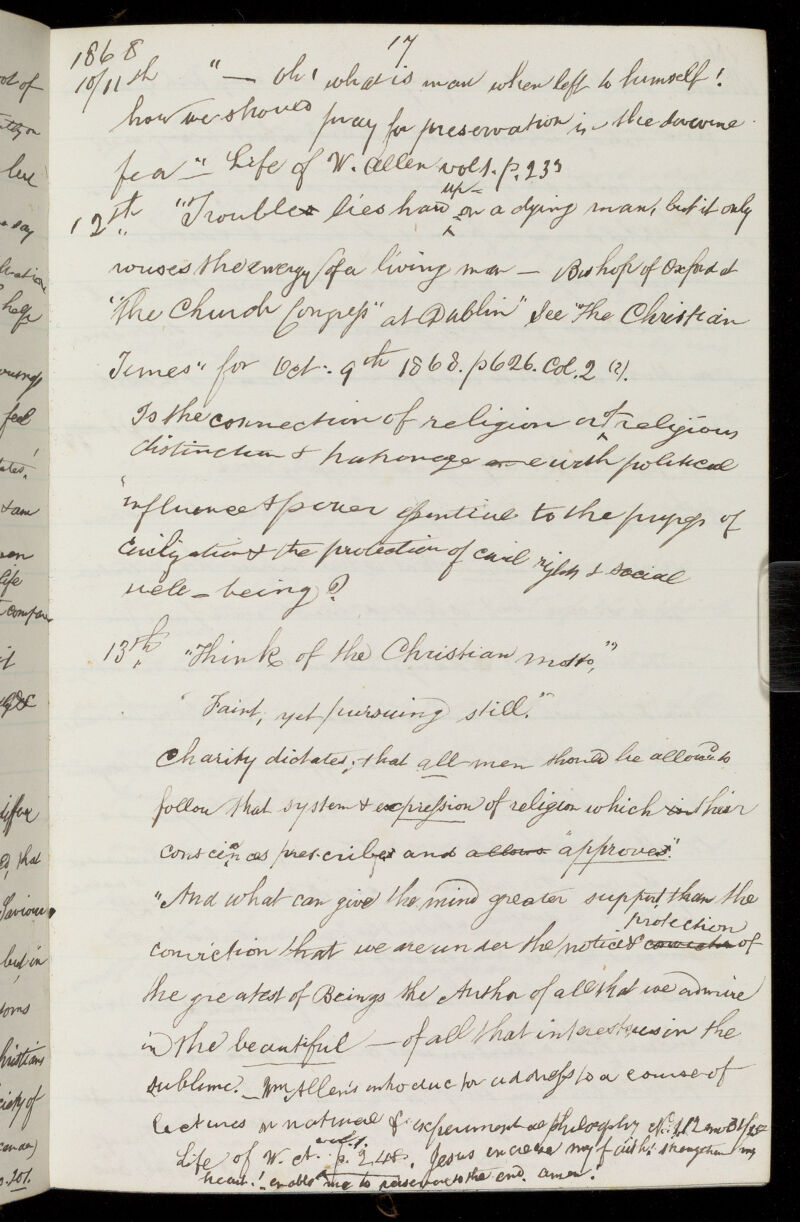 1868 17
10/11th "— Oh! what is man when left to himself!
how we should pray for preservation in the
fear" Life of W. Allen vol 1. p. 233
12th "Trouble lies hard up on a dying man, but it only
rouses the energy of a living man — Bishop of Oxford at
"The Church Congress" at Dublin" See "The Christian
Times" for Oct. 9th 1868. p626. Col. 2 (?).
Is the connection of religion or of religious
distinction & patronage with political
influence & power essential to the progress of
Civilization & the protection of civil rights & social
well-being?
13th "Think of the Christian motto,"
"Faint, yet pursuing still."
Charity dictates, that all men should be allowed to
follow that system & expression of religion which their
consciences prescribes and allows "approves".
"And what can give the mind greater support than the
protection
conviction that we are under the notice & of
the greatest of Beings the Author of all that we admire
in the beautiful — of all that interests us in the
sublime. Wm Allen's introductory address to a course of
lectures on natural & experimental philosophy
Life of W. A. vol. 1. p. 248. Jesus increase my faith! strengthen my
heart! enable me to persevere to the end. amen!
ot of
but
say
half
feel
& am
life
it
that
Saviour
but in
Christians
society of
p. 201.